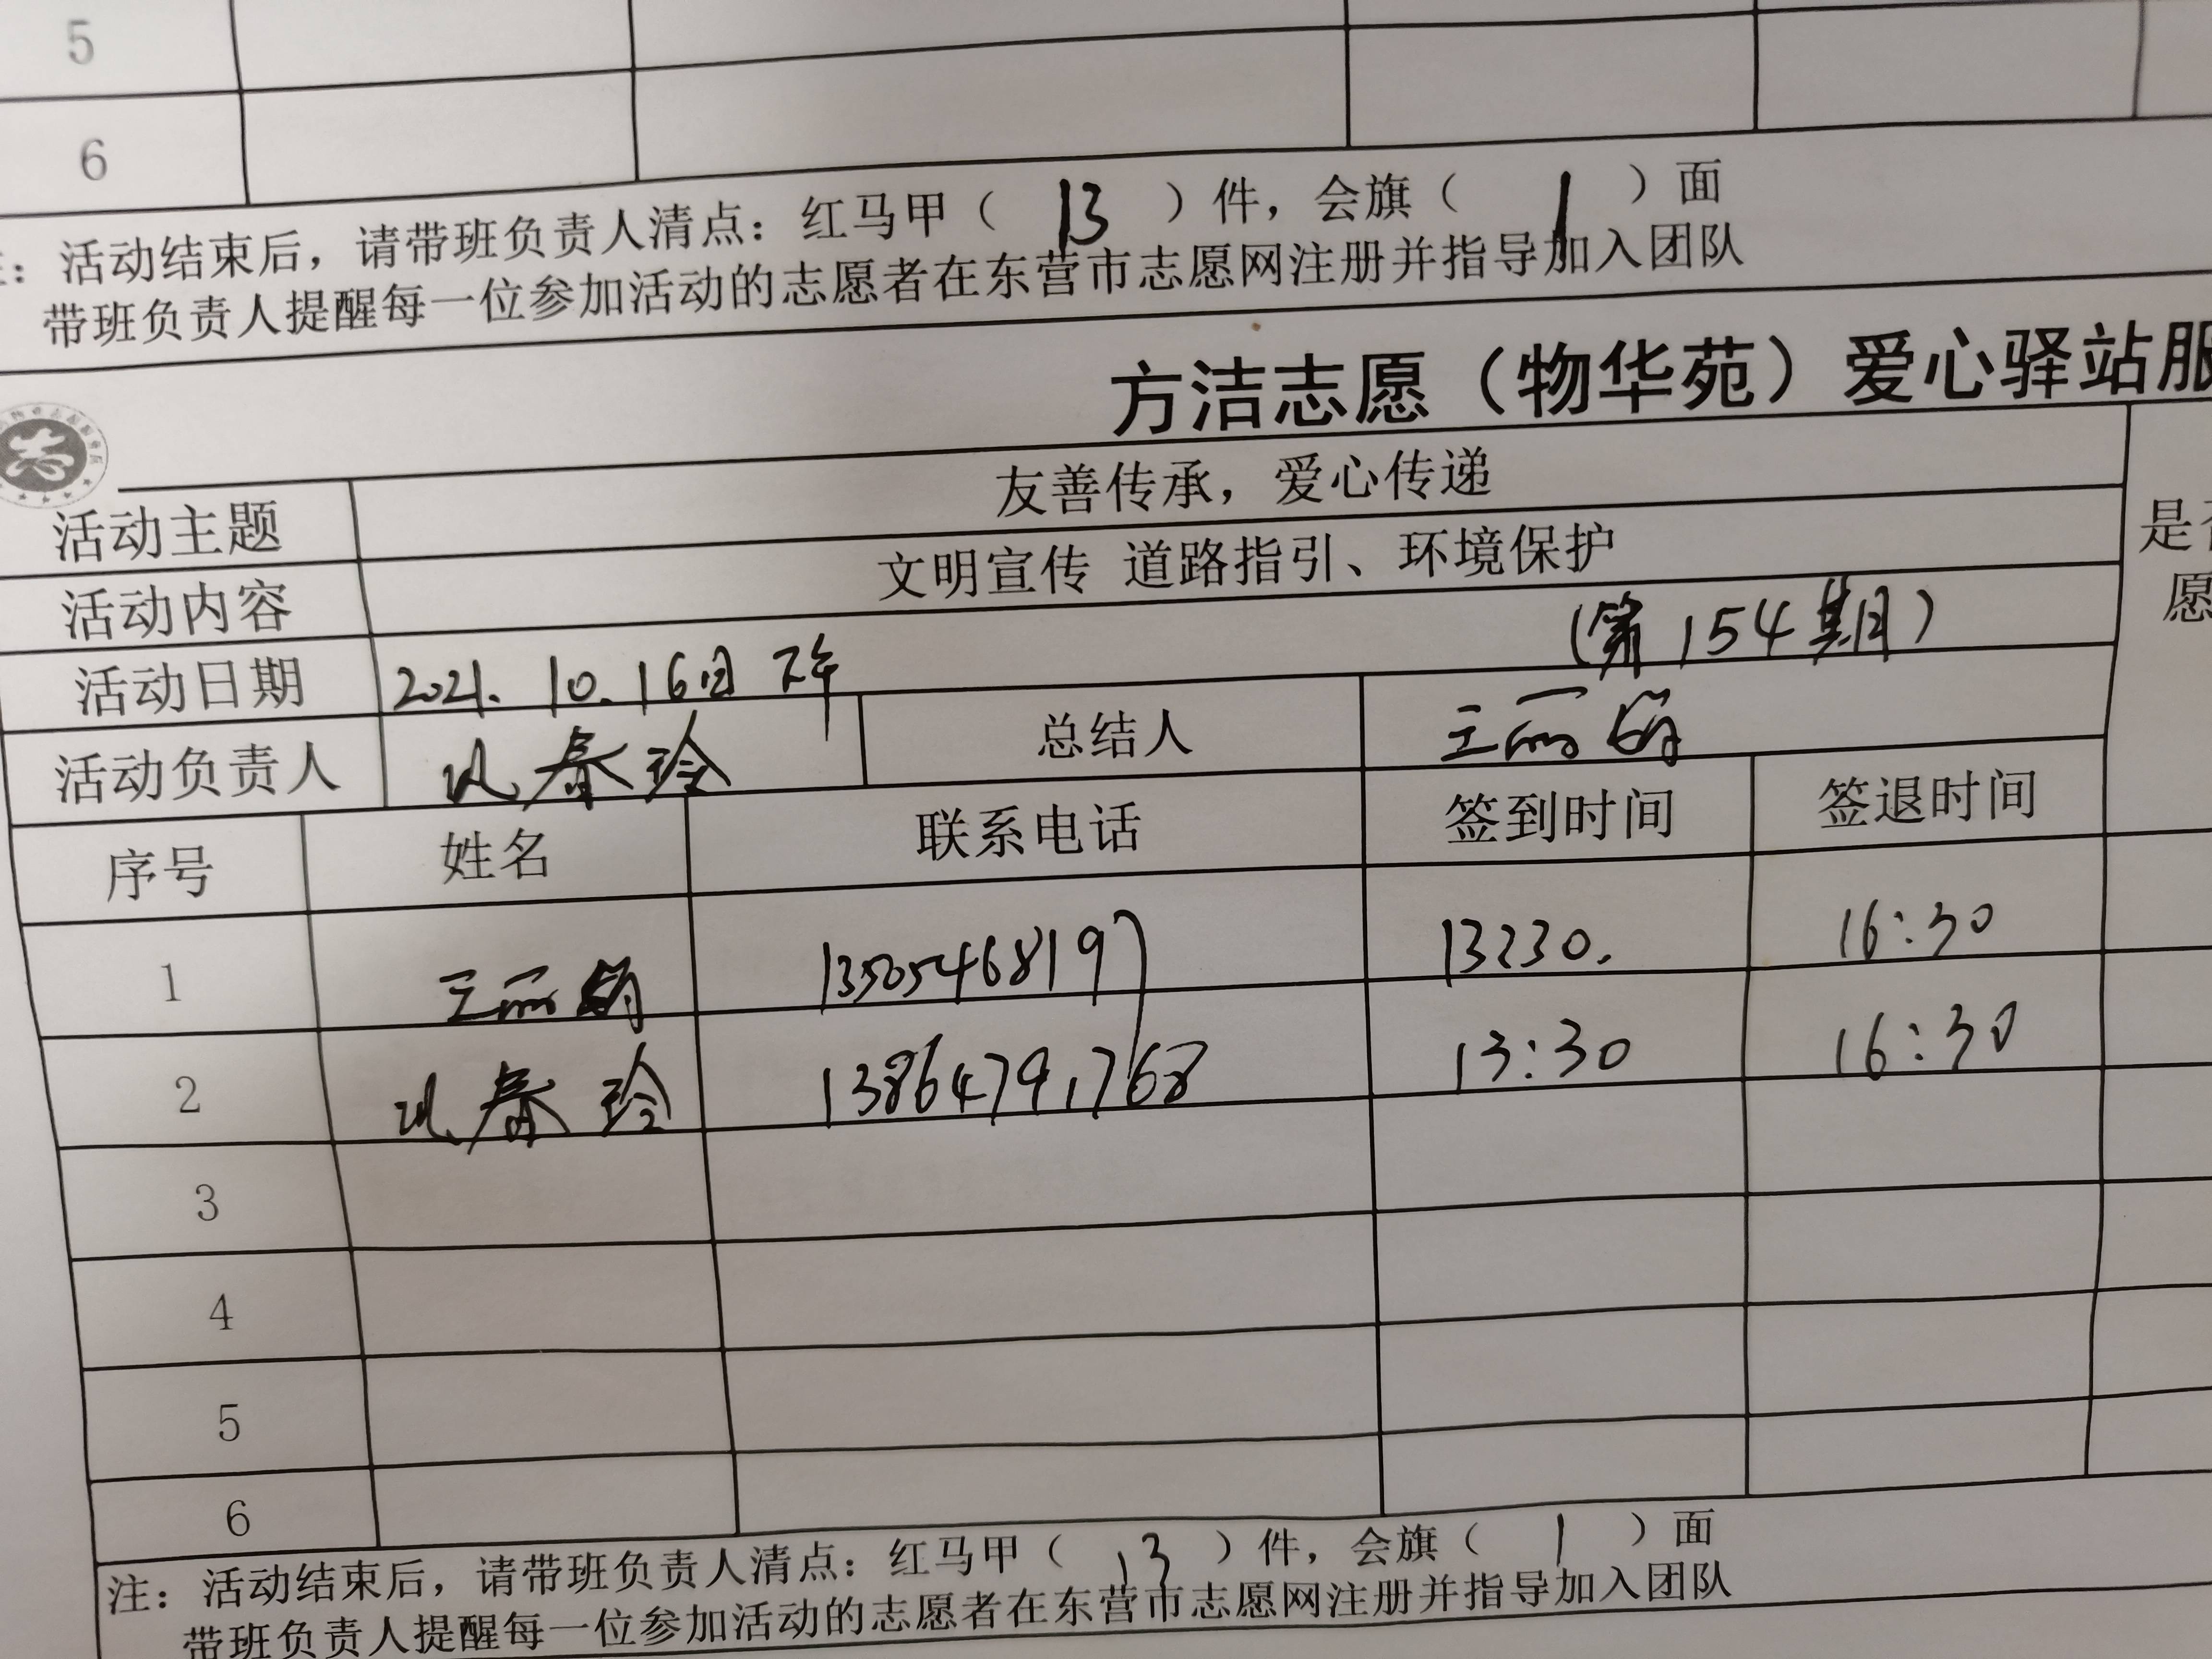 5
6
注：活动结束后，请带班负责人清点：红马甲（ 13 ）件，会旗（ 1 ）面
带班负责人提醒每一位参加活动的志愿者在东营市志愿网注册并指导加入团队
方洁志愿（物华苑）爱心驿站服
活动主题 友善传承，爱心传递
是否
活动内容 文明宣传 道路指引、环境保护
愿
活动日期 2021.10.16日 下午 （第154期）
活动负责人 春玲 总结人 王丽娟
序号 姓名 联系电话 签到时间 签退时间
1 王丽娟 13505468197 13:30. 16:30
2 春玲 13864791768 13:30 16:30
3
4
5
6
注：活动结束后，请带班负责人清点：红马甲（ 13 ）件，会旗（ 1 ）面
带班负责人提醒每一位参加活动的志愿者在东营市志愿网注册并指导加入团队